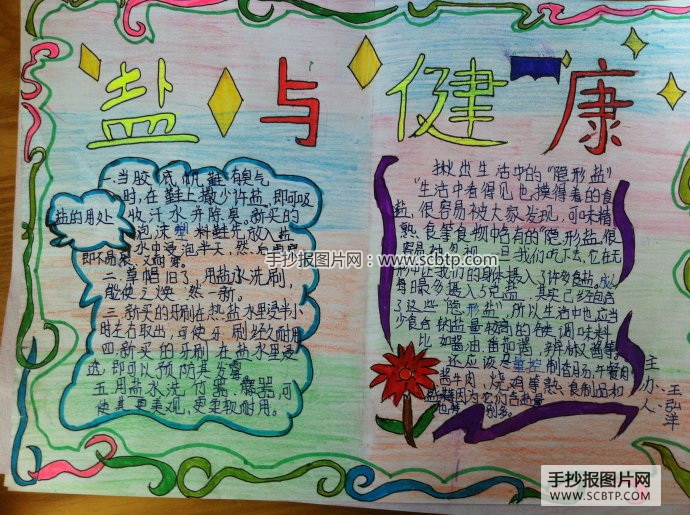 盐与健康
盐的用处
一.当胶底帆鞋有臭气
时,在鞋上撒少许盐,即可吸
收汗水并除臭。新买的
泡沫塑料鞋先放入盐
水中浸泡半天,然
即不易
二.草帽旧了,用盐水洗刷,
能使之焕然一新。
三.新买的牙刷在热盐水里浸半小
时左右取出,可使牙刷经久耐用
四.新买的牙刷在盐水里浸
即可以预防其发霉
五.用盐水洗竹器、藤器,可
使其更美观,更柔软耐用。
揪出生活中的“隐形盐”
“生活中看得见也摸得着的食
盐,很容易被大家发现,可味精
熟食等食物中含有的“隐形盐”很
容易
形中让我们的身体摄入了许多食盐。成人
每日最多摄入5克盐,其实已经包含
了这些“隐形盐”,所以生活中也应当
少食含钠盐量较高的各类调味料
比如酱油番茄酱,辣椒酱等。
还应该
酱牛肉,烧鸡等熟食制品和
因为它们含盐量
主办人:王弘洋
手抄报图片网:www.scbtp.com
手抄报图片网
WWW.SCBTP.COM